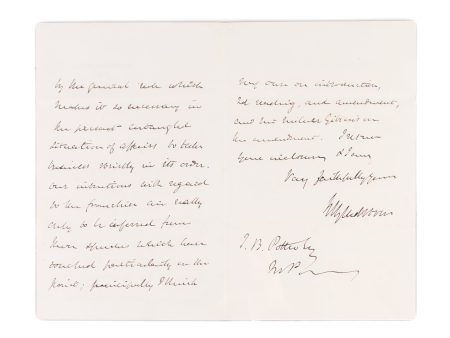 by the general rule which
makes it so necessary in
the present entangled
situation of affairs to take
business strictly in its order.
Our intentions with regard
to the franchise can really
only be inferred from
those speeches which have
touched particularly on the
point; principally I think
my own on introduction,
2d reading, and amendment,
and Mr Milner Gibson's on
the amendment. I return
your inclosures & I am
Very faithfully yours
W E Gladstone
T. B. Potter Esq
M.P.